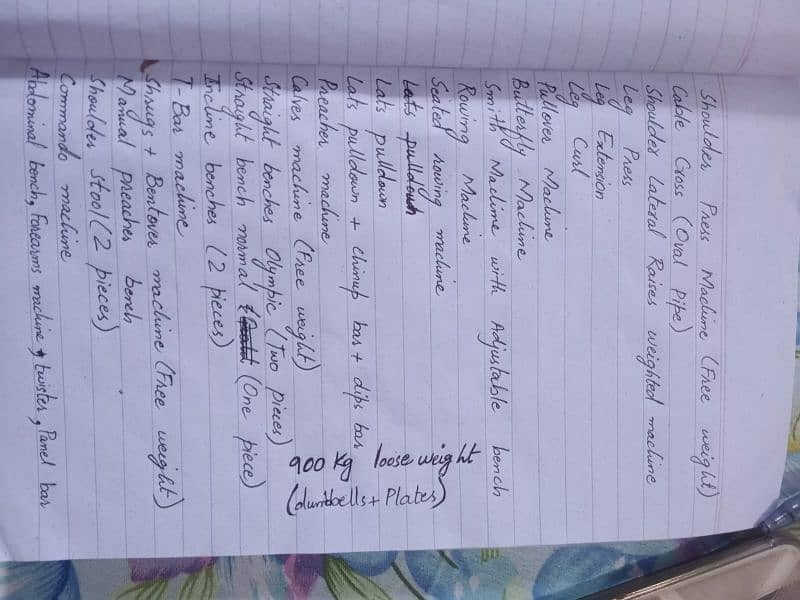 Shoulder Press Machine (Free weight)
Cable Cross (Oval Pipe)
Shoulder Lateral Raises weighted machine
Leg Press
Leg Extension
Leg Curl
Pullover Machine
Butterfly Machine
Smith Machine with Adjustable bench
Rowing Machine
Seated rowing machine
Lats pulldown
Lats pulldown
Lats pulldown + chinup bar + dips bar
Preacher machine
Calves machine (Free weight)
Straight benches Olympic (Two pieces)
Straight bench normal (One piece)
Incline benches (2 pieces)
T-Bar machine
Shrugs + Bentover machine (Free weight)
Manual preacher bench
Shoulder stool (2 pieces)
Commando machine
Abdominal bench, Forearms machine, twister, Panel bar
900 Kg loose weight
(dumbbells + Plates)